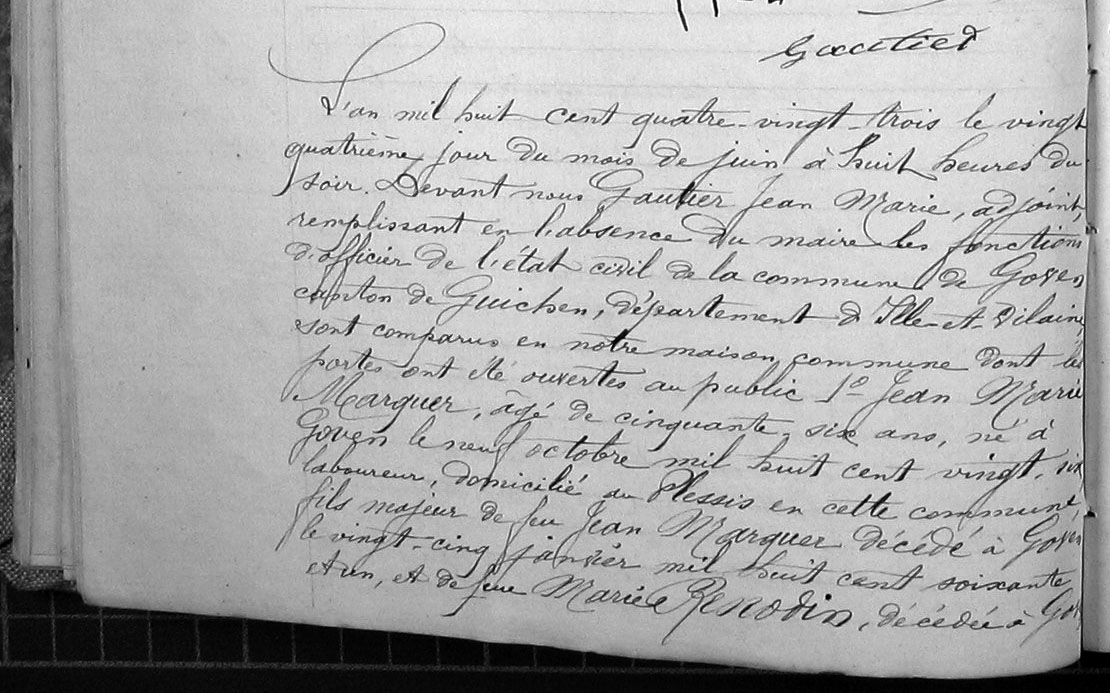 Gautier
L'an mil huit cent quatre-vingt-trois le vingt
quatrième jour du mois de juin à huit heures du
soir. Devant nous Gautier Jean Marie, adjoint,
remplissant en l'absence du maire les fonctions
d'officier de l'état civil de la commune de Goven
canton de Guichen, département d'Ille-et-Vilaine
sont comparus en notre maison commune dont les
portes ont été ouvertes au public 1º Jean Marie
Marquer, âgé de cinquante-six ans, né à
Goven le neuf octobre mil huit cent vingt-six
laboureur, domicilié au Plessis en cette commune,
fils majeur de feu Jean Marquer décédé à Goven
le vingt-cinq janvier mil huit cent soixante
et un, et de feue Marie Renodin, décédée à Gov